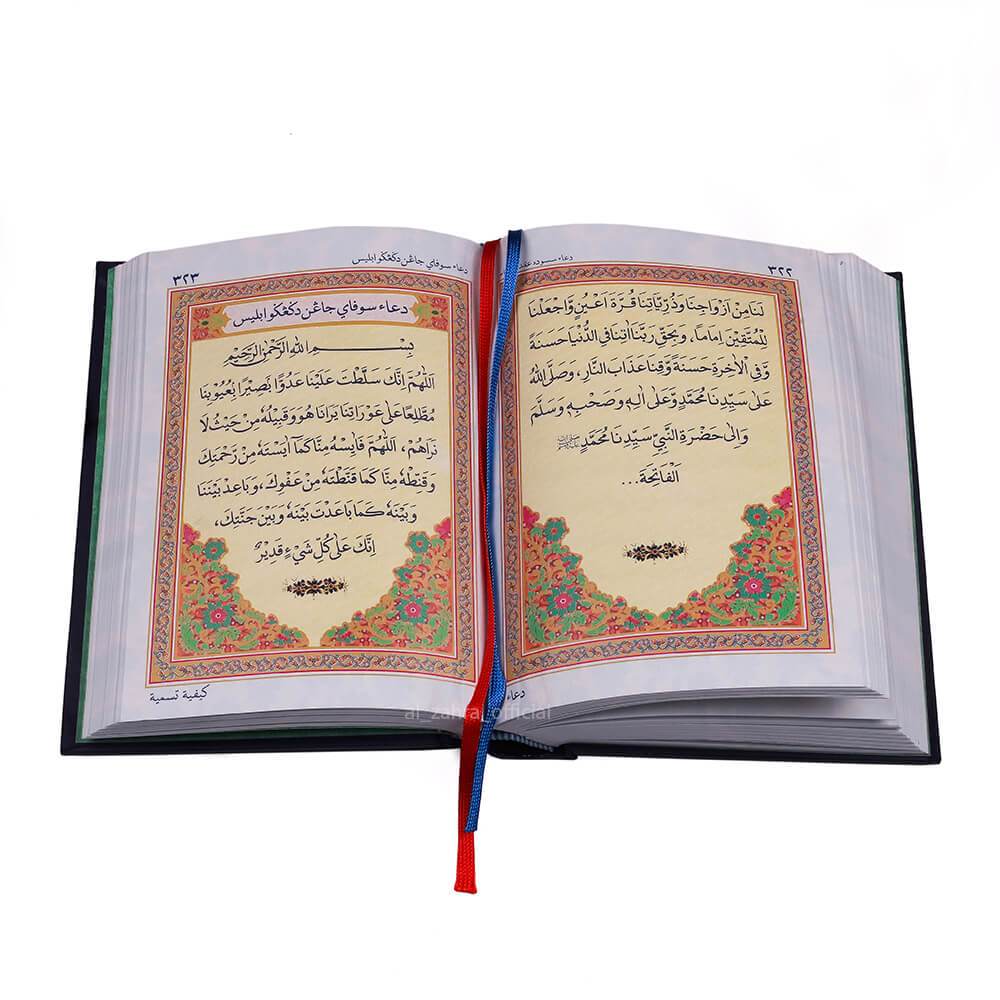 ٣٢٢
دعاء سسوده
لَنَا مِنْ اَزْوَاجِنَا وَذُرِّيَّاتِنَا قُرَّةَ اَعْيُنٍ وَّاجْعَلْنَا
لِلْمُتَّقِيْنَ اِمَامًا، وَبِحَقِّ رَبَّنَا اٰتِنَا فِى الدُّنْيَا حَسَنَةً
وَّفِى الْاٰخِرَةِ حَسَنَةً وَّقِنَا عَذَابَ النَّارِ، وَصَلَّى اللّٰهُ
عَلٰى سَيِّدِنَا مُحَمَّدٍ وَّعَلٰى اٰلِهٖ وَصَحْبِهٖ وَسَلَّمَ
وَاِلٰى حَضْرَةِ النَّبِيِّ سَيِّدِنَا مُحَمَّدٍ ﷺ
اَلْفَاتِحَةْ...
دعاء
دعاء سوفاي جاڠن دݢڠݢو ابليس
٣٢٣
دعاء سوفاي جاڠن دݢڠݢو ابليس
بِسْمِ اللّٰهِ الرَّحْمٰنِ الرَّحِيْمِ
اَللّٰهُمَّ اِنَّكَ سَلَّطْتَ عَلَيْنَا عَدُوًّا بَصِيْرًا بِعُيُوْبِنَا
مُطَّلِعًا عَلٰى عَوْرَاتِنَا يَرَانَا هُوَ وَقَبِيْلُهٗ مِنْ حَيْثُ لَا
نَرَاهُمْ، اَللّٰهُمَّ فَاٰيِسْهُ مِنَّا كَمَا اٰيَسْتَهٗ مِنْ رَّحْمَتِكَ
وَقَنِّطْهُ مِنَّا كَمَا قَنَّطْتَهٗ مِنْ عَفْوِكَ، وَبَاعِدْ بَيْنَنَا
وَبَيْنَهٗ كَمَا بَاعَدْتَ بَيْنَهٗ وَبَيْنَ جَنَّتِكَ،
اِنَّكَ عَلٰى كُلِّ شَيْءٍ قَدِيْرٌ
كيفية تسمية
al_zahra_official